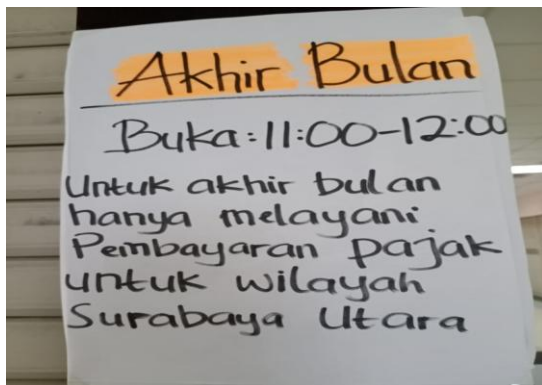 Akhir Bulan
Buka:11:00-12:00
Untuk akhir bulan
hanya melayani
Pembayaran pajak
untuk wilayah
Surabaya Utara